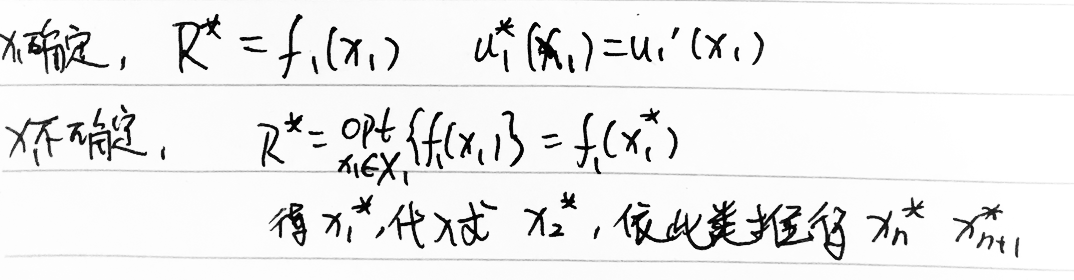 x₁确定, R* = f₁(x₁) u₁*(x₁)=u₁′(x₁)
x₁不确定, R* = opt_{x₁∈X₁}{f₁(x₁)} = f₁(x₁*)
得 x₁*,代入式 x₂*,依此类推得 xₙ* xₙ₊₁*